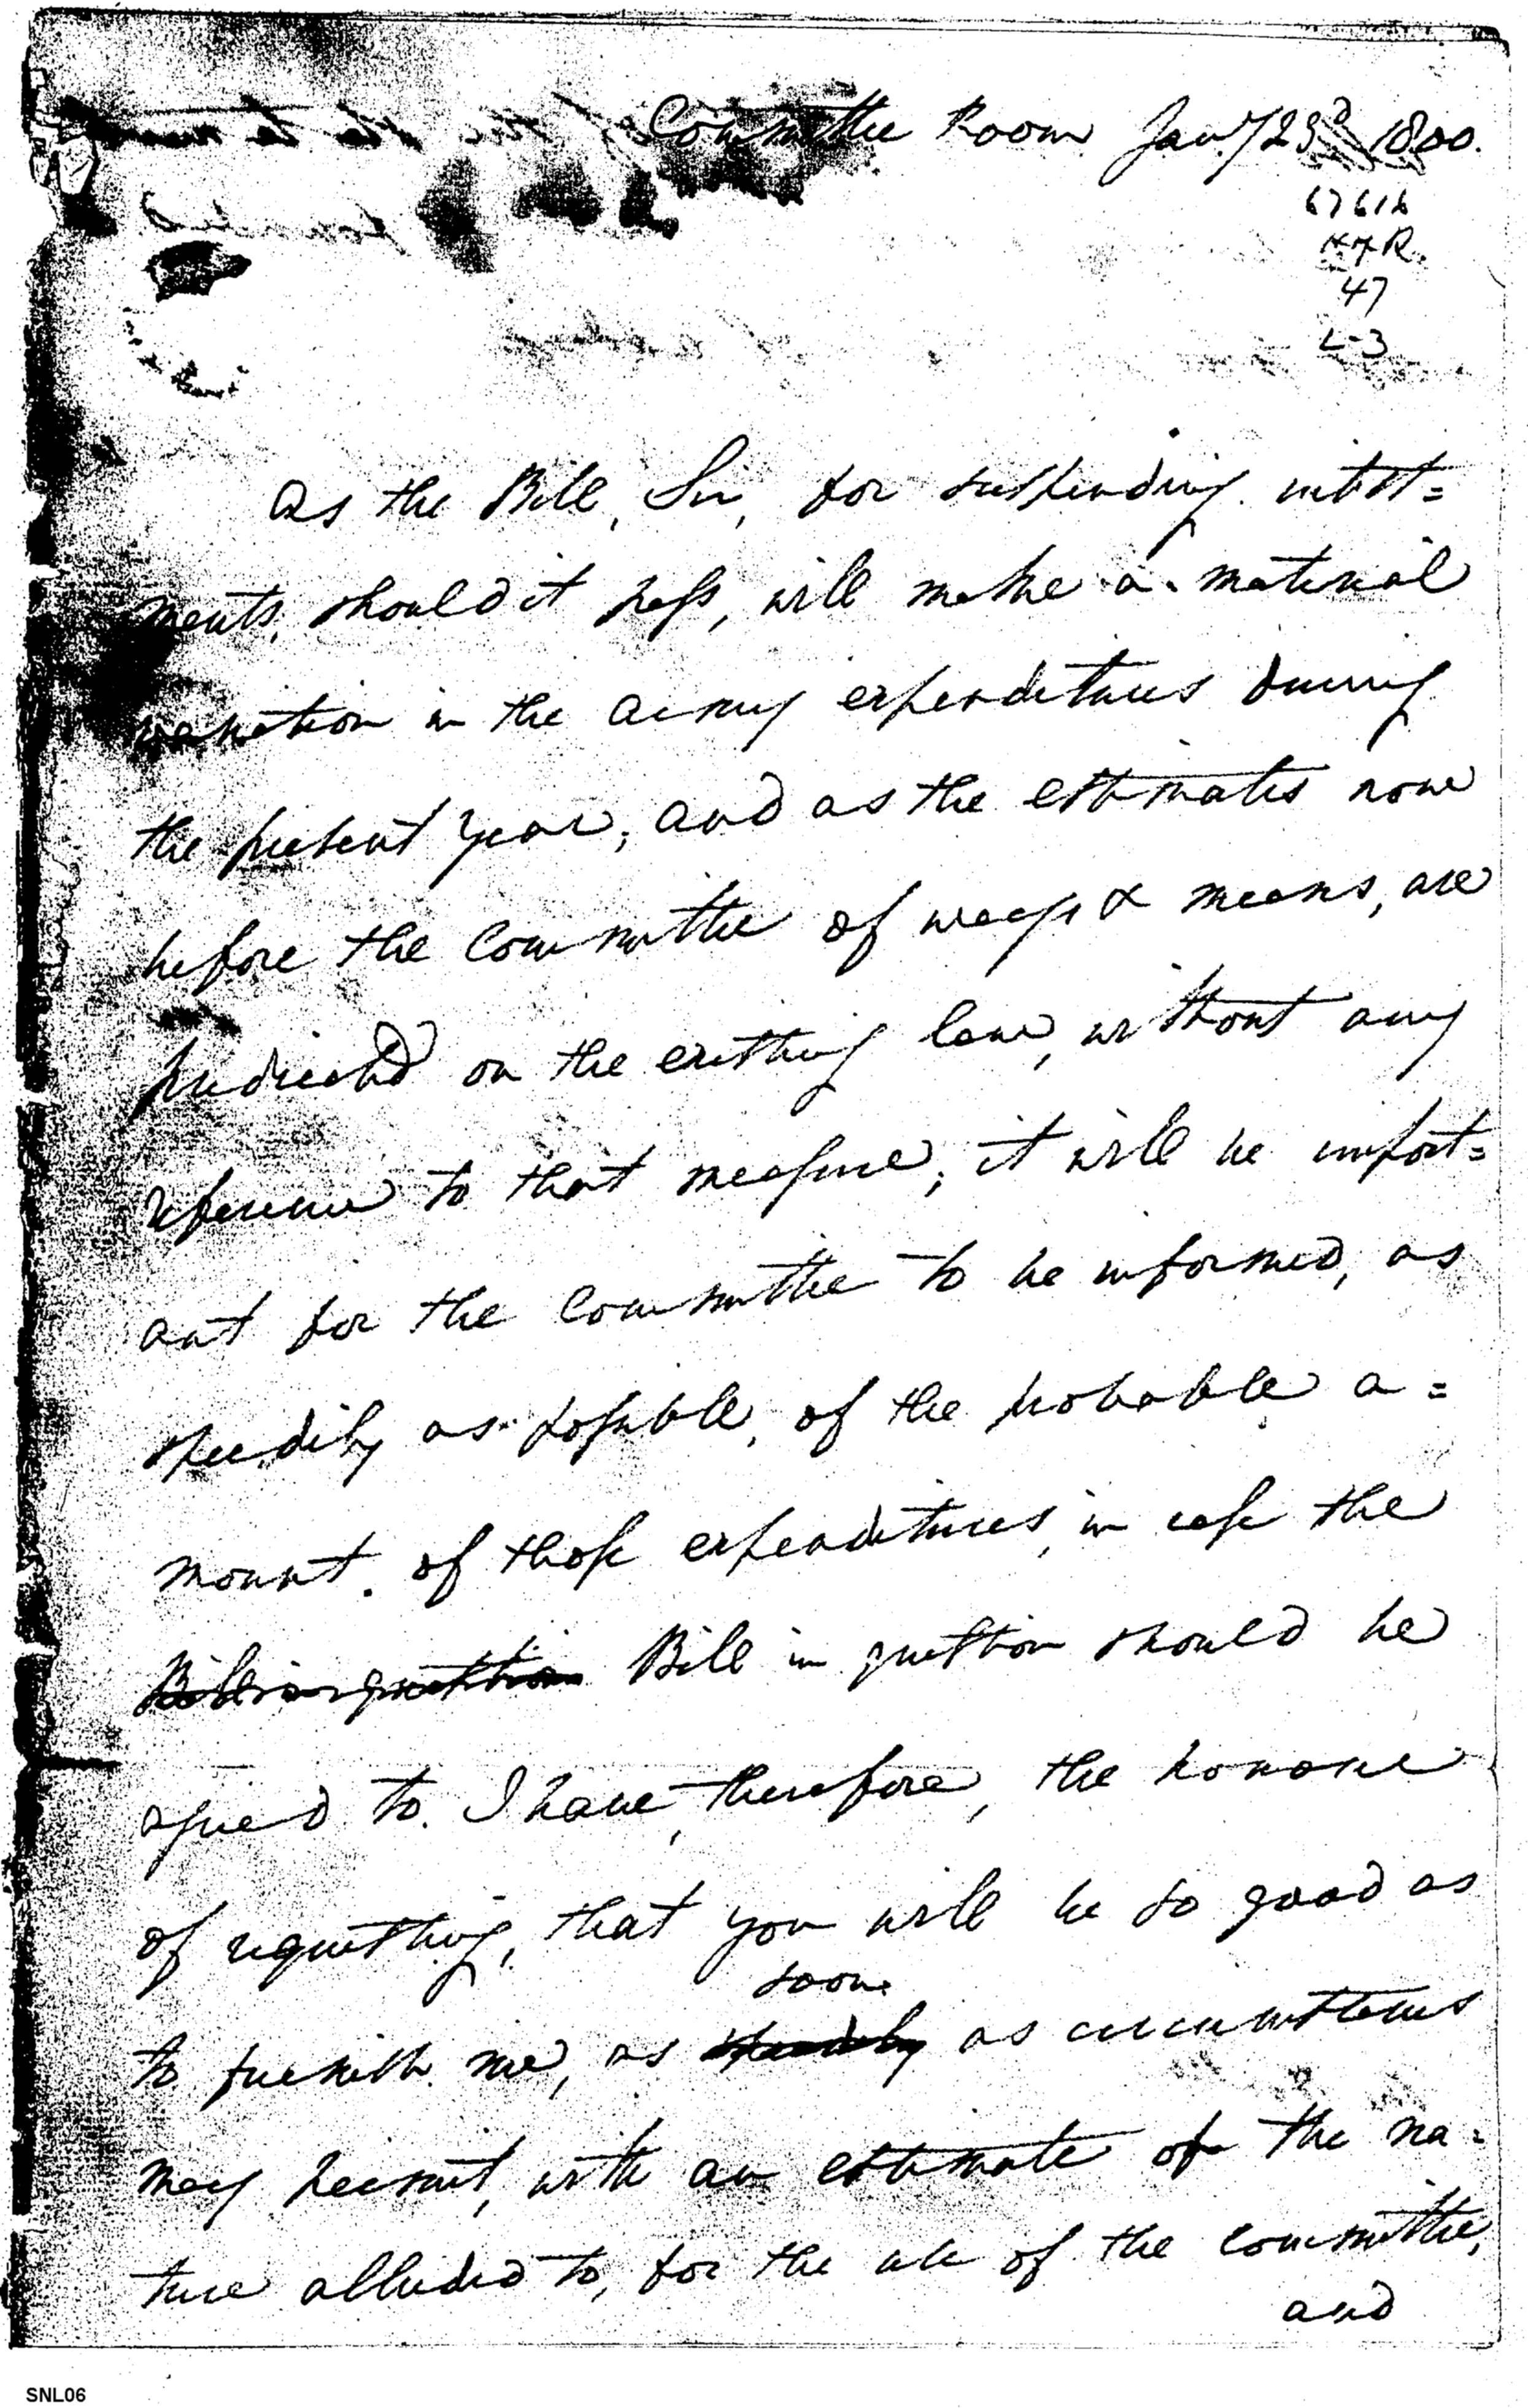 Committee Room Jany 23d 1800.
67616
47
L-3
As the Bill, Sir, for suspending inlist=
ments, should it pass, will make a material
variation in the army expenditures during
the present year; and as the estimates now
before the Committee of ways & means, are
predicated on the existing law, without any
reference to that measure; it will be import=
ant for the Committee to be informed, as
speedily as possible, of the probable a=
mount of those expenditures, in case the
Bill in question Bill in question should be
agreed to. I have, therefore, the honour
of requesting, that you will be so good as
soon
to furnish me, as speedily as circumstances
may permit, with an estimate of the na=
ture alluded to, for the use of the committee,
and
SNL06